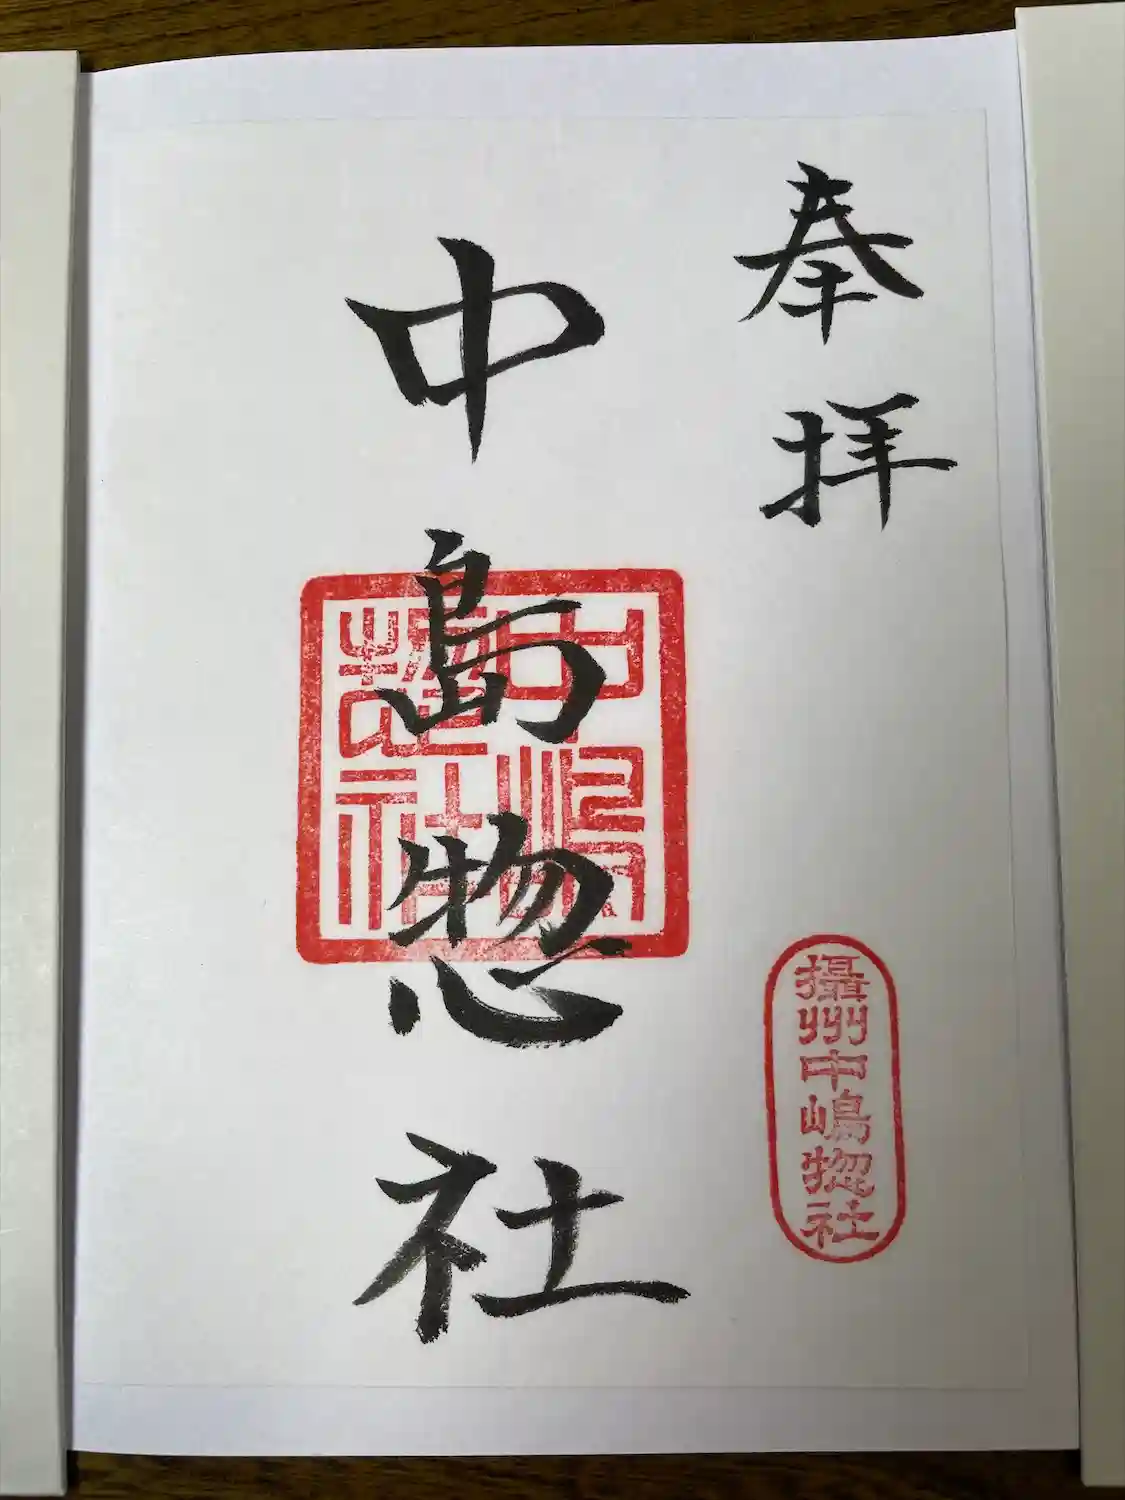 奉拝
攝州中嶋惣社
中島惣社
中嶋惣社